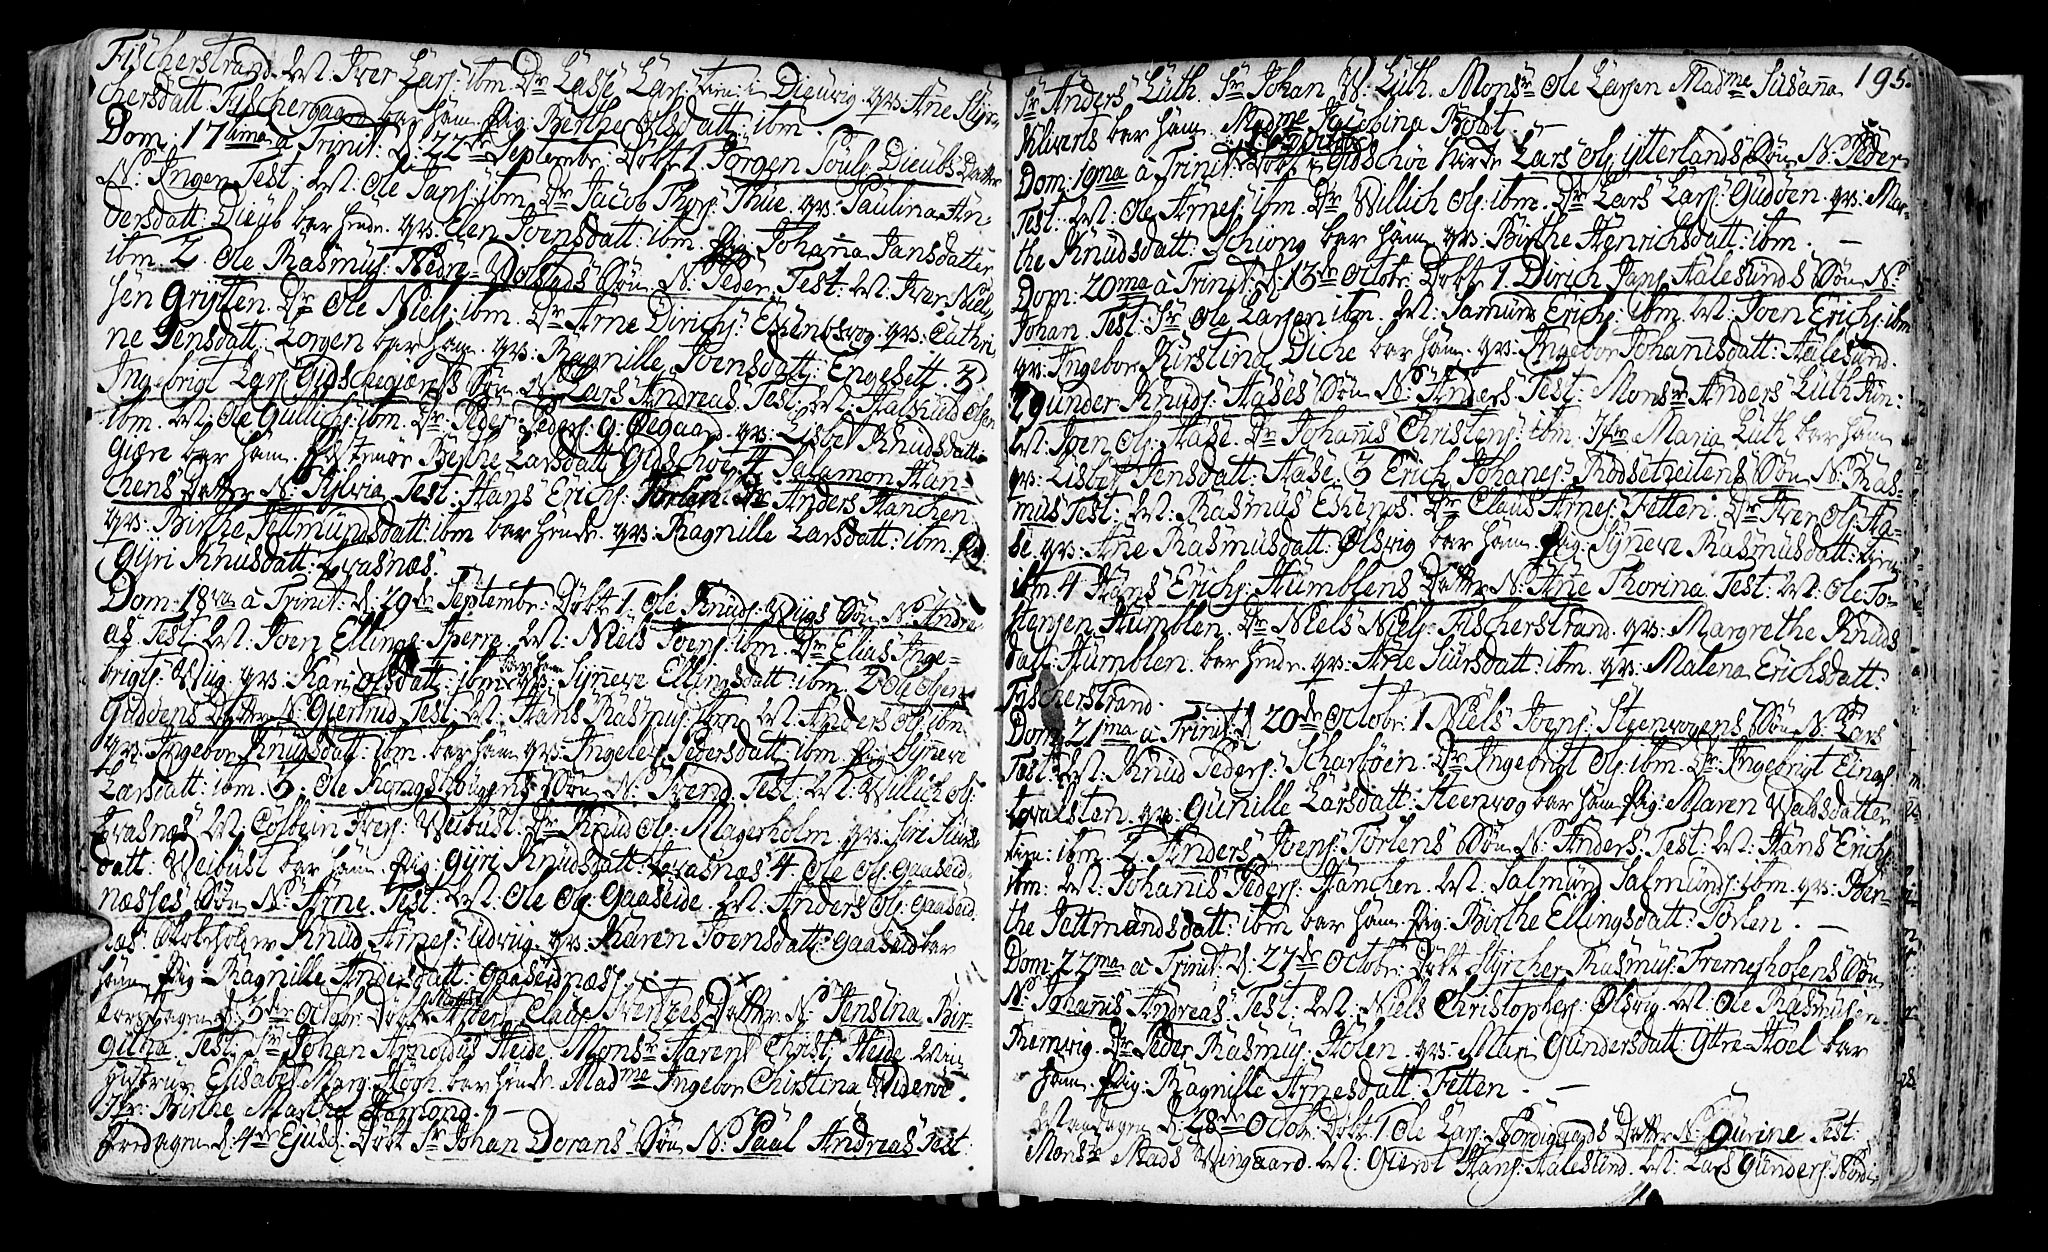 Fischerstrand. M: Iver Lars: ibm. Dr Lasse Lars: tien: i Dieuvig. qvs: Ane Styr-
chersdatt: Fyschergaard bar ham. Pig: Berthe Olsdatt: ibm.
Dom: 17tima à Trinit: d: 22de Septembr: Døbt 1. Jørgen Pouls: Dieubs Datter
N: Ingen Test: M: Ole Jans: ibm. Dr Jacob Thors: Thue. qvs: Paulina An-
dersdatt: Dieub bar hende. qvs: Elen Joensdatt: ibm. Pig: Johanna Jansdatter
ibm. 2. Ole Rasmus: Nedre-Volstads Søn: N: Peder. Test: M: Iver Niel-
sen Grytten. Dr Ole Niels: ibm. Dr Arne Dirichs: qvs: Cathri-
ne Jensdatt: Lorgen bar ham. qvs: Ragnille Joensdatt: Engesett. 3.
Ingebrigt Lars: Gidschegierets Søn N: Lars Andreas. Test: M: Olsen
ibm. M: Ole Gullichs: ibm. Dr Peder Peders: G: Øegaard. qvs: Lisbet Knudsdatt:
Giære bar ham. Berthe Larsdatt: Gidschøe. 4. Salamon Han-
chens Datter N: Sylvia Test: Hans Erichs: Tørlen. Dr Anders Hanchen
qvs: Birthe Settmundsdatt: ibm bar hende. qvs: Ragnille Larsdatt: ibm. Pig:
Gyri Knusdatt: Qvasnæs.
Dom: 18va à Trinit: d: 29de Septembr: Døbt 1. Ole Knuds: Wiigs Søn N: Andre-
as Test: M: Joen Ellings: Sperre. M: Niels Joens: ibm. Dr Elias Inge-
brigts: Wiig. qvs: Kari Olsdatt: ibm bar ham qvs: Synneve Ellingsdatt: ibm. 2 Ole Olsen
Gudøens Datter N: Giertrud Test: M: Hans Rasmus: ibm M: Anders Ols: ibm
qvs: Ingebor Knudsdatt: ibm. bar ham. qvs: Ingeleif Pedersdatt: ibm. Pig: Synneve
Larsdatt: ibm. 3. Ole Kongshougens Søn N: Svend. Test: M: Willich Ols:
Qvasnæs M: Colbein Ivers: Weibust. Dr Knud Ols: Magerholm. qvs: Siri Siurs-
datt: Weibust bar ham. Pig: Gyri Knudsdatt: Qvasnæs 4. Ole Ols: Gaaseid-
næsses Søn N: Arne. Test: M: Ole Ols: Gaaseide. M: Anders Ols: Gaaseid-
næs. Knud Arnes: Udvig. qvs: Karen Joensdatt: Gaaseid bar
ham Pig: Ragnille Andersdatt: Gaaseidnæs.
Torsdagen d: 3die Octobr: Døbt Monsr Claus Wentzes Datter N: Jensina Bir-
githa. Test: Sr Johan Arnoldus Heide. Monsr Christ: Heide.
Elisabet Marg: Høgh. bar hende. Madme Ingebor Chirstina Widerøe.
Jfr: Birthe Marthe Hamond.
Fredagen d: 4de Ejusd: Døbt Sr Johan Dorans Søn N: Paul Andreas Test:
Sr Anders Lüth. Sr Johan W: Lüth. Monsr Ole Larsen Madme Susanna 195.
bar ham. Madme Jacobina Boldt.
Dom: 19na à Trinit: Døbt i Gidschøe Kirke Lars Ols: Ytterlands Søn N: Peder
Test: M: Ole Arnes: ibm. Dr Willich Ols: ibm. Dr Lars Lars: Gudøen. qvs: Mar-
the Knudsdatt: Schiong bar ham qvs: Birthe Henrichsdatt: ibm.
Dom: 20ma à Trinit: d: 13de Octobr: Døbt 1. Dirich Jans: Aalesunds Søn N:
Johan. Test: Sr Ole Larsen ibm. M: Samund Erichs: ibm. M: Joen Erichs: ibm
qvs: Ingebor Kirstina Diche bar ham. qvs: Ingebor Johanisdatt: Aalesund.
2 Gunder Knuds: Aases Søn N: Anders. Test: Monsr Anders Lüth
M: Joen Ols: Aase. Dr Johanis Christens: ibm. Jfr Maria Lüth bar ham
qvs: Lisbet Jensdatt: Aase. 3 Erich Johanes: Rødsetreitens Søn N: Ras-
mus Test: M: Rasmus Dr Claus Arnes: Fetten. Dr Iver Ols: Aa-
se. qvs: Ane Rasmusdatt: Olsvig bar ham. Pig: Synneve Rasmusdatt:
ibm. 4 Hans Erichs: Humblens Datter N: Ane Thorina Test: M: Ole To-
stensen Humblen. Dr Niels Niels: Fischerstrand. qvs: Margrethe Knuds
datt: Humblen. bar hende. qvs: Ane Siursdatt: ibm. qvs: Malena Erichsdatt:
Fyscherstrand.
Dom: 21ma à Trinit: d: 20de Octobr: 1 Niels Joens: Steenvogens Søn N: Lars
Test: M: Knud Peders: Scharbøen. Dr Ingebrigt Ols: ibm. Dr Ingebrigt Einers:
qvs: Gunille Larsdatt: Steenvog bar ham Pig: Maren Waldsdatter
tien: ibm. 2. Anders Joens: Tørlens Søn N: Anders. Test: M: Hans Erichs:
ibm: M: Johanis Peders: Hanchen. M: Salmund Salmunds: ibm. qvs: Ber-
the Settmundsdatt: ibm bar ham. Pig: Birthe Ellingsdatt: Tørlen.
Dom: 22ma à Trinit: d: 27de Octobr: Døbt Styrcher Rasmus: Tremeshofens Søn
N: Johanis Andreas. Test: M: Niels Christophers: Olsvig M: Ole Rasmusen
Remvig. Dr Peder Rasmus: Holen. qvs: Mari Gundersdatt: Ytre-Høel bar
ham. Pig: Ragnille Arnesdatt: Fetten.
Mandagen d: 28de Octobr: Døbt 1. Ole Lars: Nordigaards Datter N: Gurine Test:
Monsr Mads Wingaard. M: Gierdt Hans: Aalesund. M: Lars Gunders: Nordi-